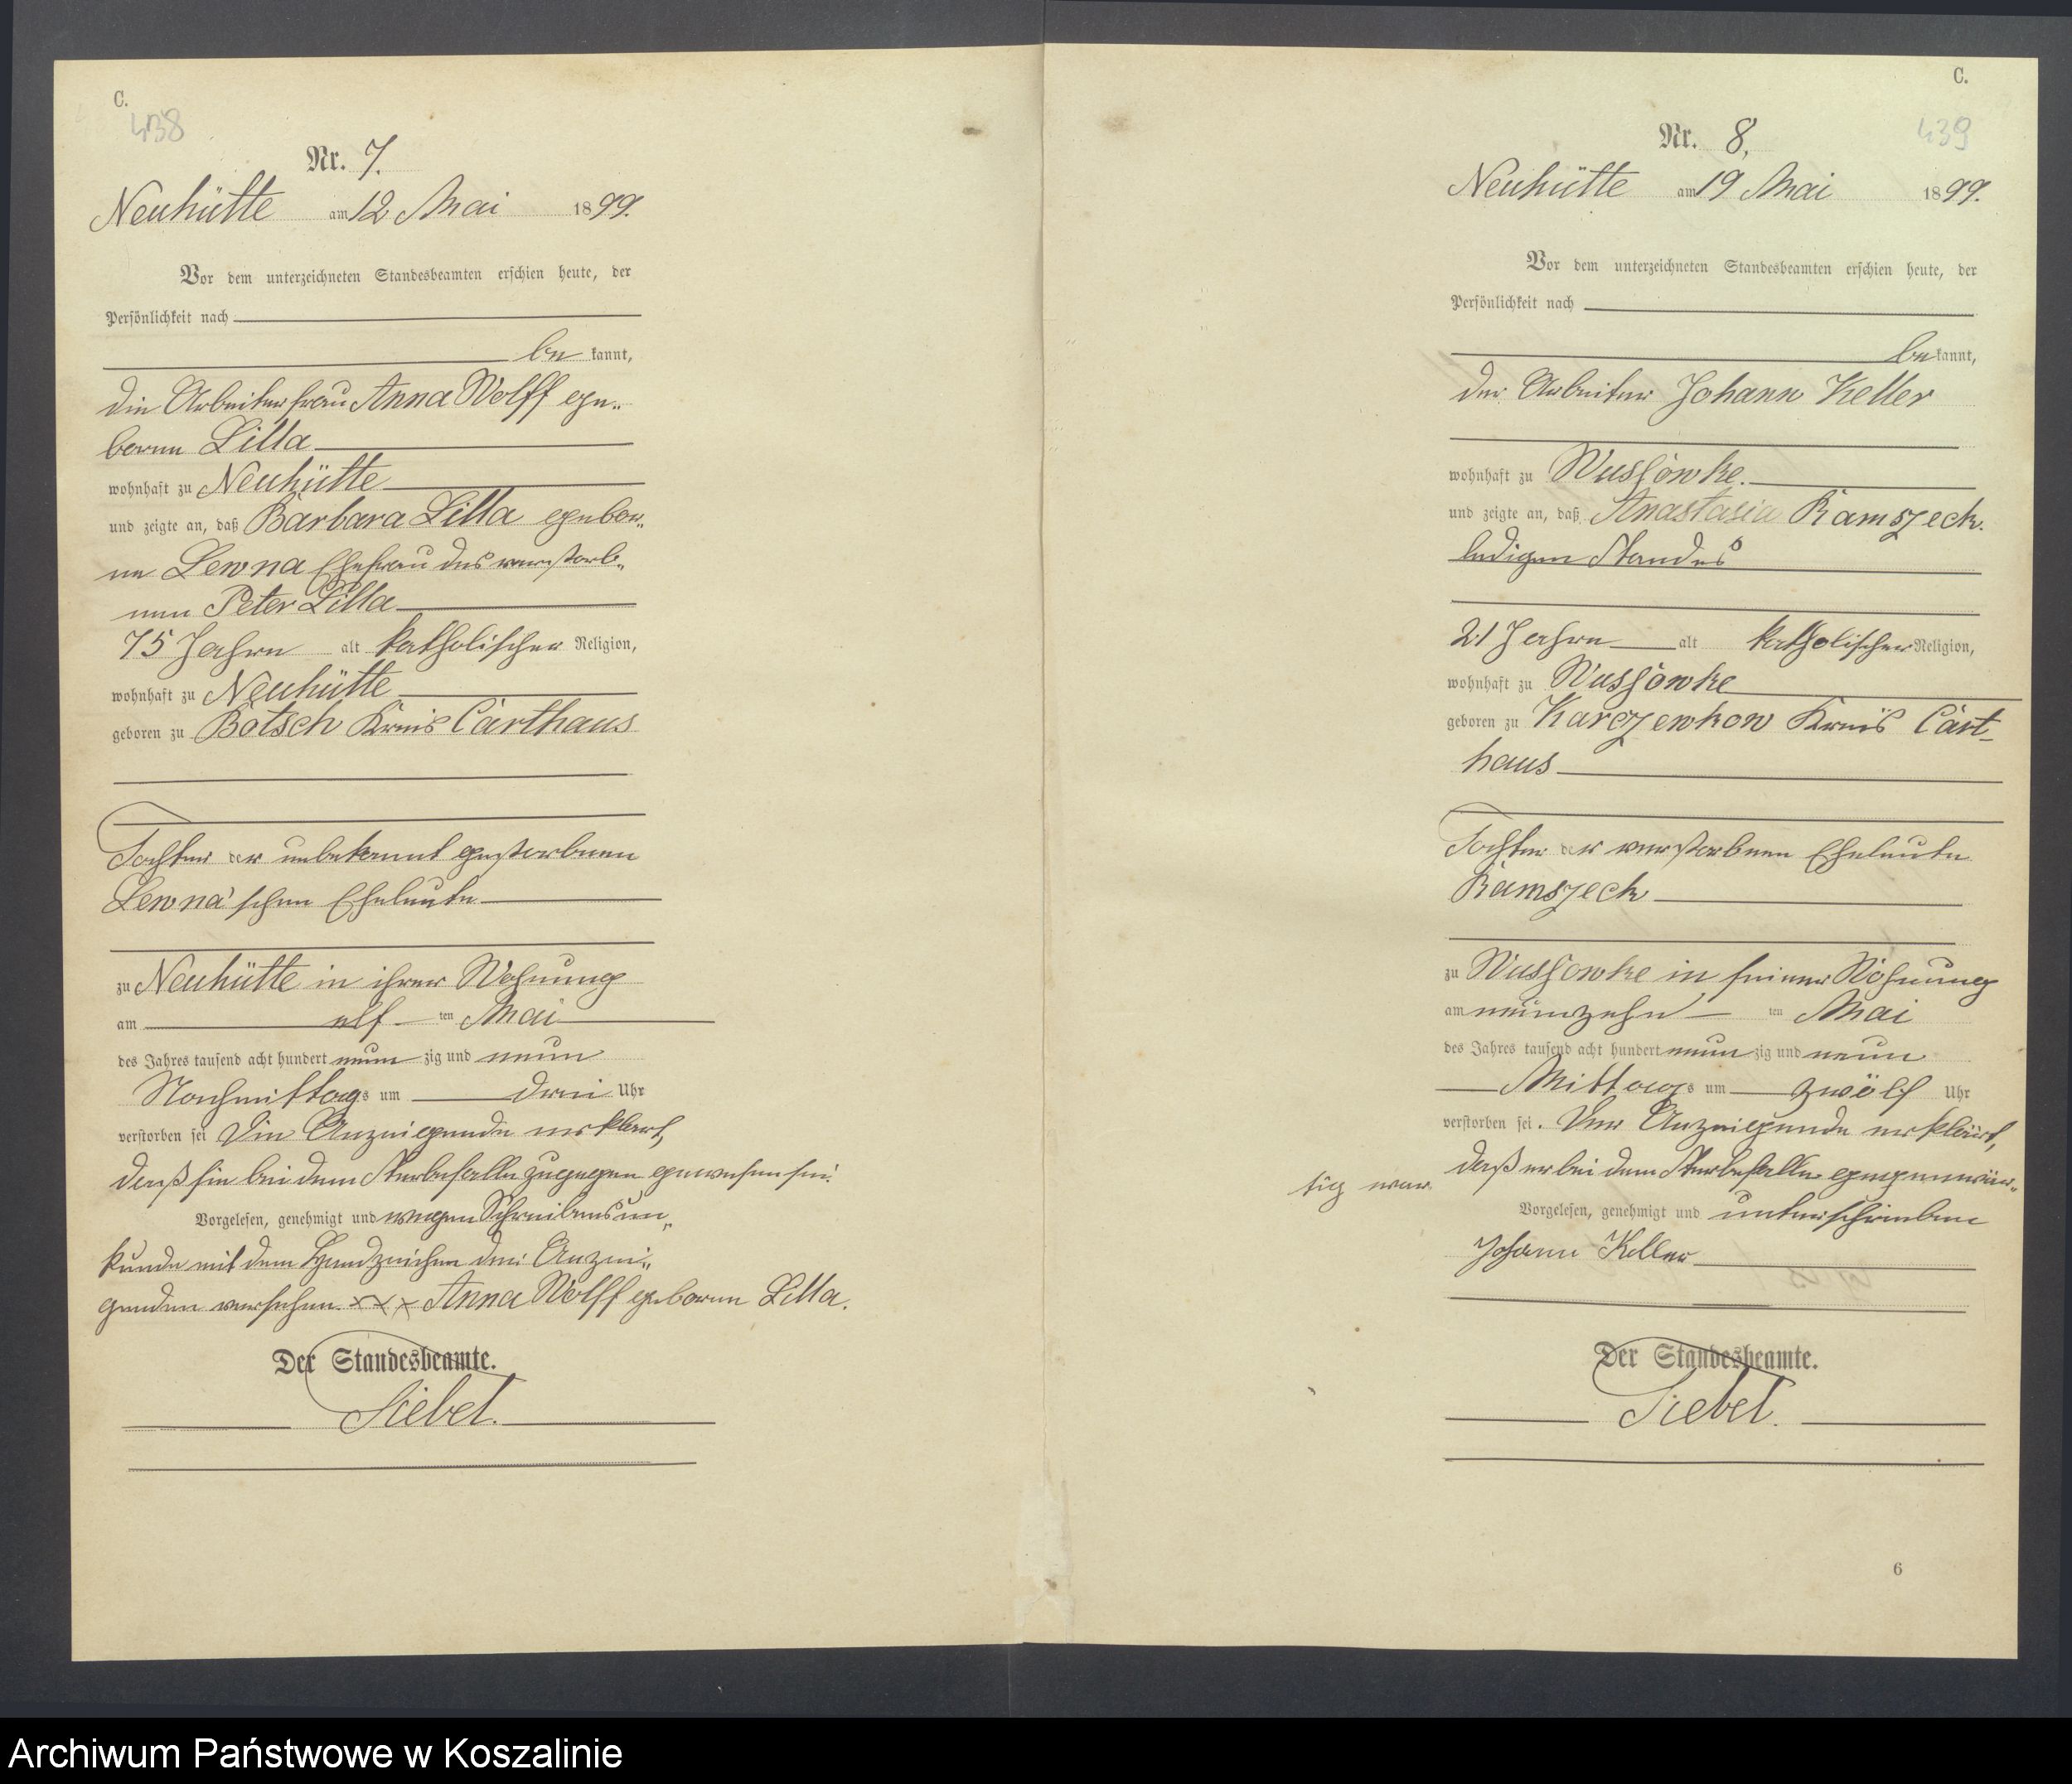 C.
438
Nr. 7.
Neuhütte am 12 Mai 1899.
Vor dem unterzeichneten Standesbeamten erschien heute, der
Persönlichkeit nach
be kannt,
die Arbeiterfrau Anna Wolff ge„
borene Lilla
wohnhaft zu Neuhütte
und zeigte an, daß Barbara Lilla gebor„
ne Lewna Ehefrau des verstorb„
nen Peter Lilla
75 Jahre alt katholischer Religion,
wohnhaft zu Neuhütte
geboren zu Botsch Kreis Carthaus
Tochter der unbekannt gestorbenen
Lewna'schen Eheleute
zu Neuhütte in ihrer Wohnung
am elf ten Mai
des Jahres tausend acht hundert neun zig und neun
Nachmittags um drei Uhr
verstorben sei Die Anzeigende erklärt,
daß sie bei dem Sterbefalle zugegen gewesen sei.
Vorgelesen, genehmigt und wegen Schreibensun„
kunde mit dem Handzeichen der Anzei„
genden versehen xxx Anna Wolff geborene Lilla.
Der Standesbeamte.
Siebel.
C.
439
Nr. 8,
Neuhütte am 19 Mai 1899.
Vor dem unterzeichneten Standesbeamten erschien heute, der
Persönlichkeit nach
be kannt,
der Arbeiter Johann Keller
wohnhaft zu Wussowke.
und zeigte an, daß Anastasia Ramszeck.
ledigen Standes
21 Jahre alt katholischer Religion,
wohnhaft zu Wussowke
geboren zu Karczewkow Kreis Cart-
haus
Tochter der verstorbenen Eheleute
Ramszeck
zu Wussowke in seiner Wohnung
am neunzehn ten Mai
des Jahres tausend acht hundert neun zig und neun
Mittags um zwölf Uhr
verstorben sei. Der Anzeigende erklärt,
daß er bei dem Sterbefalle gegenwär„
tig war.
Vorgelesen, genehmigt und unterschrieben
Johann Keller
Der Standesbeamte.
Siebel.
6
Archiwum Państwowe w Koszalinie